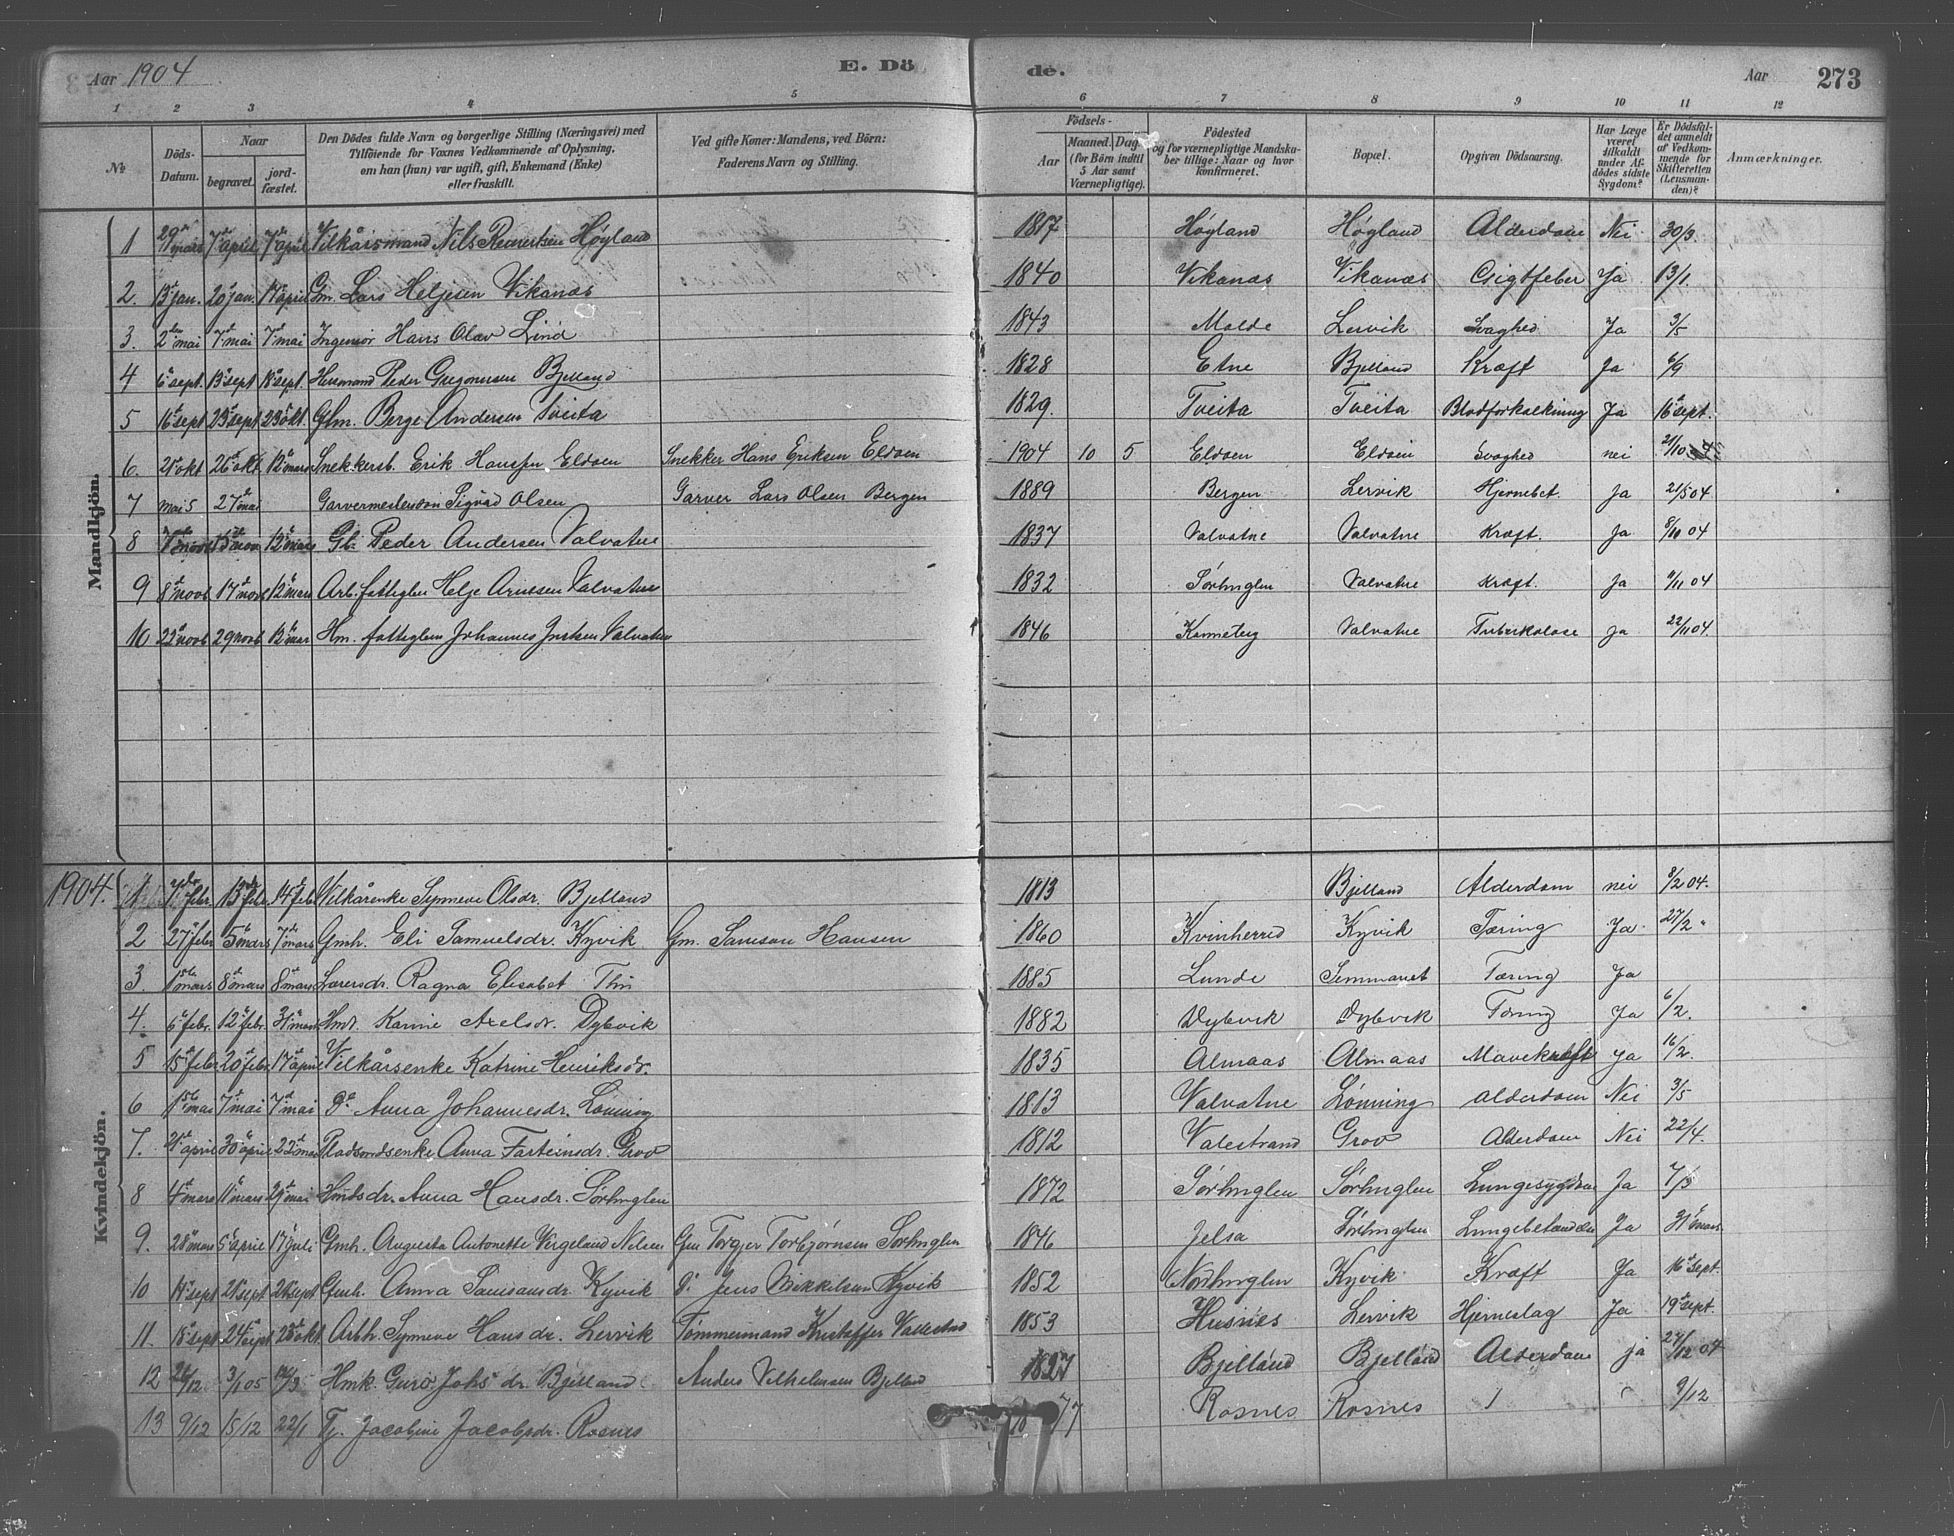 Aar 1904
E. Dö
de.
Aar
273
1 2 3 4 5 6 7 8 9 10 11 12
№
Döds-Datum.
Naar
begravet.
jord-fæstet.
Den Dödes fulde Navn og borgerlige Stilling (Næringsvei) med
Tilföiende for Voxnes Vedkommende af Oplysning,
om han (hun) var ugift, gift, Enkemand (Enke)
eller fraskilt.
Ved gifte Koner: Mandens, ved Börn:
Faderens Navn og Stilling.
Födsels-
Aar
Maaned. Dag
(for Börn indtil
5 Aar samt
Værnepligtige).
Födested
og for værnepligtige Mandsku-
ber tillige: Naar og hvor
konfirmeret.
Bopæl.
Opgiven Dödsaarsag.
Har Læge
været
tilkaldt
under Af-
dödes sidste
Sygdom?
Er Dödsfal-
det anmeldt
af Vedkom-
mende for
Skifteretten
(Lensman-
den)?
Anmærkninger.
Mandkjön.
1 29 mars 7 april 7 april Vilkårsmand Nils Høyland 1817 Høyland Høyland Alderdom Nei 30/3.
2. 13 jan. 20 jan. 17 april Gm. Lars Heljesen Vikanæs 1840 Vikanæs Vikanæs Gigtfeber Ja 13/1.
3. 2den mai 7d mai 7d mai Ingeniør Hans Olav Lind 1843 Molde Lervik Svaghed Ja 3/5
4 6 sept. 13 sept 18 sept. Husmand Peder Bjelland 1828 Etne Bjelland Kræft Ja 6/9
5 16 sept 23 sept 23 okt. Gfm. Berge Andersen Tveita 1829. Tveita Tveita Blodforkalkning Ja 16 sept.
6. 21 okt 26 okt. 12 mars Snekkersb. Erik Hansen Eldøen Snekker Hans Eriksen Eldøen 1904 10 5 Eldøen Eldøen Svaghed nei 21/10
7 mai 5 27 mai Garvermestersøn Sigvad Olsen Garver Lars Olsen Bergen 1889 Bergen Lervik Hjernebet. ja 21/5 04.
8 7 novb 15 nov 12 mars Gb. Peder Andersen Valvatne 1837 Valvatne Valvatne Kræft. ja 8/11 04
9 8 novb 17 novb 12 mars Arb. fattiglem Helje Arnesen Valvatne 1832 Sørhuglen Valvatne Kræft. ja 9/11 04
10 22 novb 29 novb 12 mar Hm. fattiglem Johannes Valvatne 1846 Valvatne Tuberkolose ja 22/11 04.
1904.
Kvindekjön.
1 7de febr. 13de febr. 14 feb Vilkårenke Synneve Olsdr. Bjelland 1813 Bjelland Alderdom nei 8/2 04.
2 27 febr 5 mars 7 mars Gmh. Eli Samuelsdr. Kyvik Gm. Samson Hansen 1860 Kvinherred Kyvik Tæring Ja 27/2 "
3. 1ste mars 8d mars 8d mars Lærersdr. Ragna Elisabet 1885 Lunde Tæring Ja
4. 6 febr. 12 febr. 31 mars Hmdr. Karine Axelsdr. Dybvik 1882 Dybvik Dybvik Tæring Ja 6/2.
5 15 febr. 20 febr. 17 april Vilkårsenke Katrine Henriksdr. 1835 Almaas Almaas Mavekræft ja 16/2.
6 1ste mai 7d mai 7d mai Do Anna Johannesdr. Lønning 1813 Valvatne Lønning alderdom Nei 3/5
7. 21 april 30 april 22 mai Pladsmandsenke Anna Farteinsdr. Grov 1812 Valestrand Grov Alderdom Nei 22/4.
8 4 mars 11 mars 29 mai Hmdsdr. Anna Hansdr. Sørhuglen 1872 Sørhuglen Sørhuglen Lungesygdom Ja 7/3
9. 28 mars 5 april 17 juli Gmh. Augusta Antonette Vergeland Nilsen Gm Torger Torbjørnsen Sørhuglen 1846 Jelsa Sørhuglen Lungebetændelse Ja 31 mars.
10 14 sept 21 sept 21 sept Gmh. Anna Samsonsdr. Kyvik Do Jens Mikkelsen Kyvik 1852 Nordhuglen Kyvik Kræft Ja 16 sept.
11. 18 sept. 24 sept 23 okt. Arbh. Synneve Hansdr. Lervik Tømmermand Kristoffer 1853 Husnes Lervik Hjerneslag Ja 19 sept.
12 /12 3/1 05 /3 Hmk. Guro Johs dr. Bjelland. Anders Vilhelmsen Bjelland 1827 Bjelland Bjelland Alderdom ja 27/12 04
13 9/12 15/12 22/1 Tj. Jacobine Jacobsdr. Rosnes 77 Rosnes Rosnes 9/12